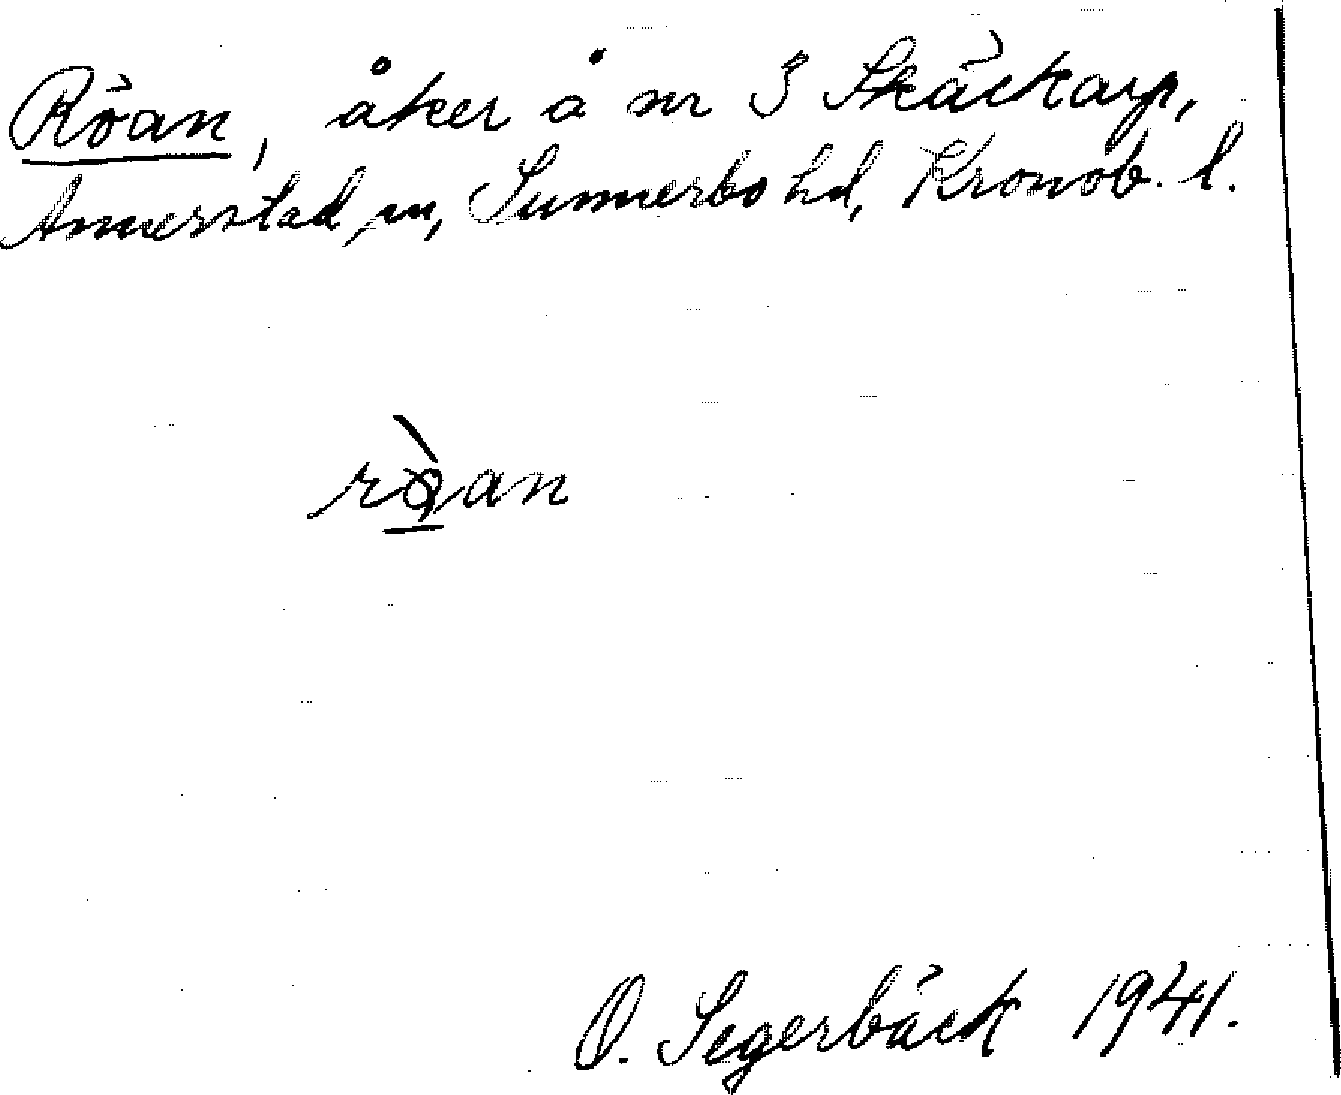 Röan, åker å nr 3 Skäckarp,
Annerstad sn, Sunnerbo hd, Kronob. l.
rø̀an
O. Segerbäck 1941.